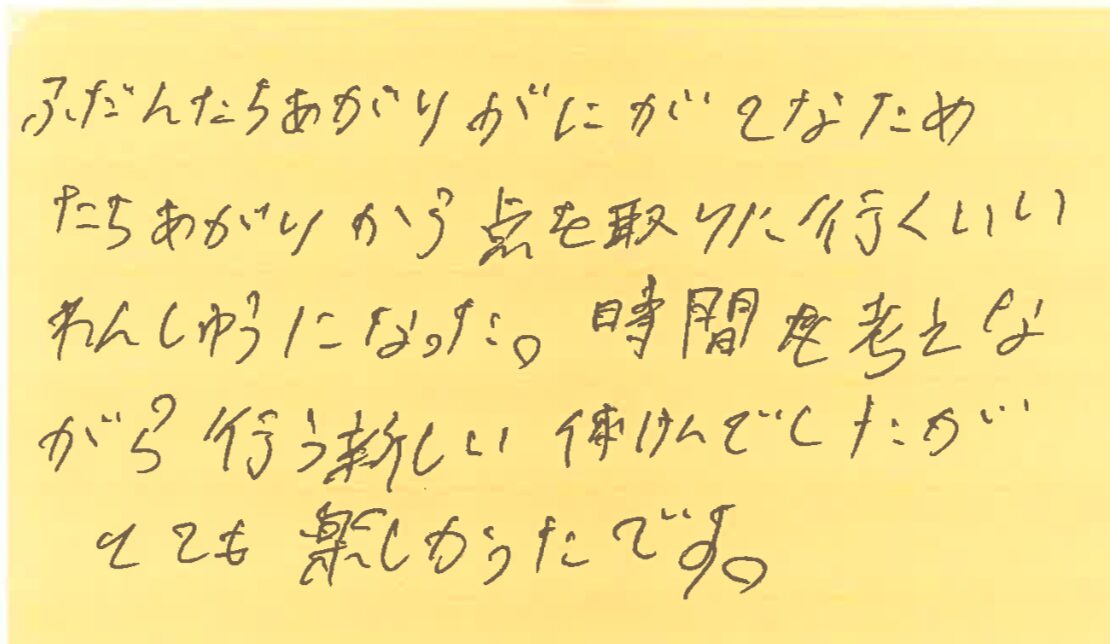 ふだんたちあがりがにがてなため
たちあがりから点を取りに行くいい
れんしゅうになった。時間を考えな
がら行う新しい体けんでしたが
とても楽しかったです。